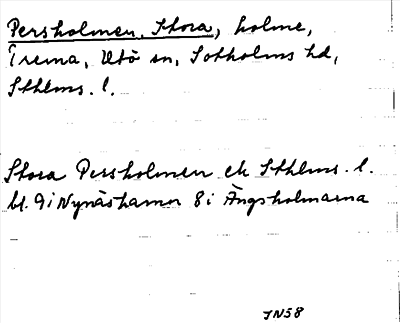 Persholmen, Stora, holme,
Utö sn, Sotholms hd,
Sthlms. l.
Stora Persholmen ek Sthlms. l.
bl. 9 i Nynäshamn 8 i Ängsholmarna
JN58